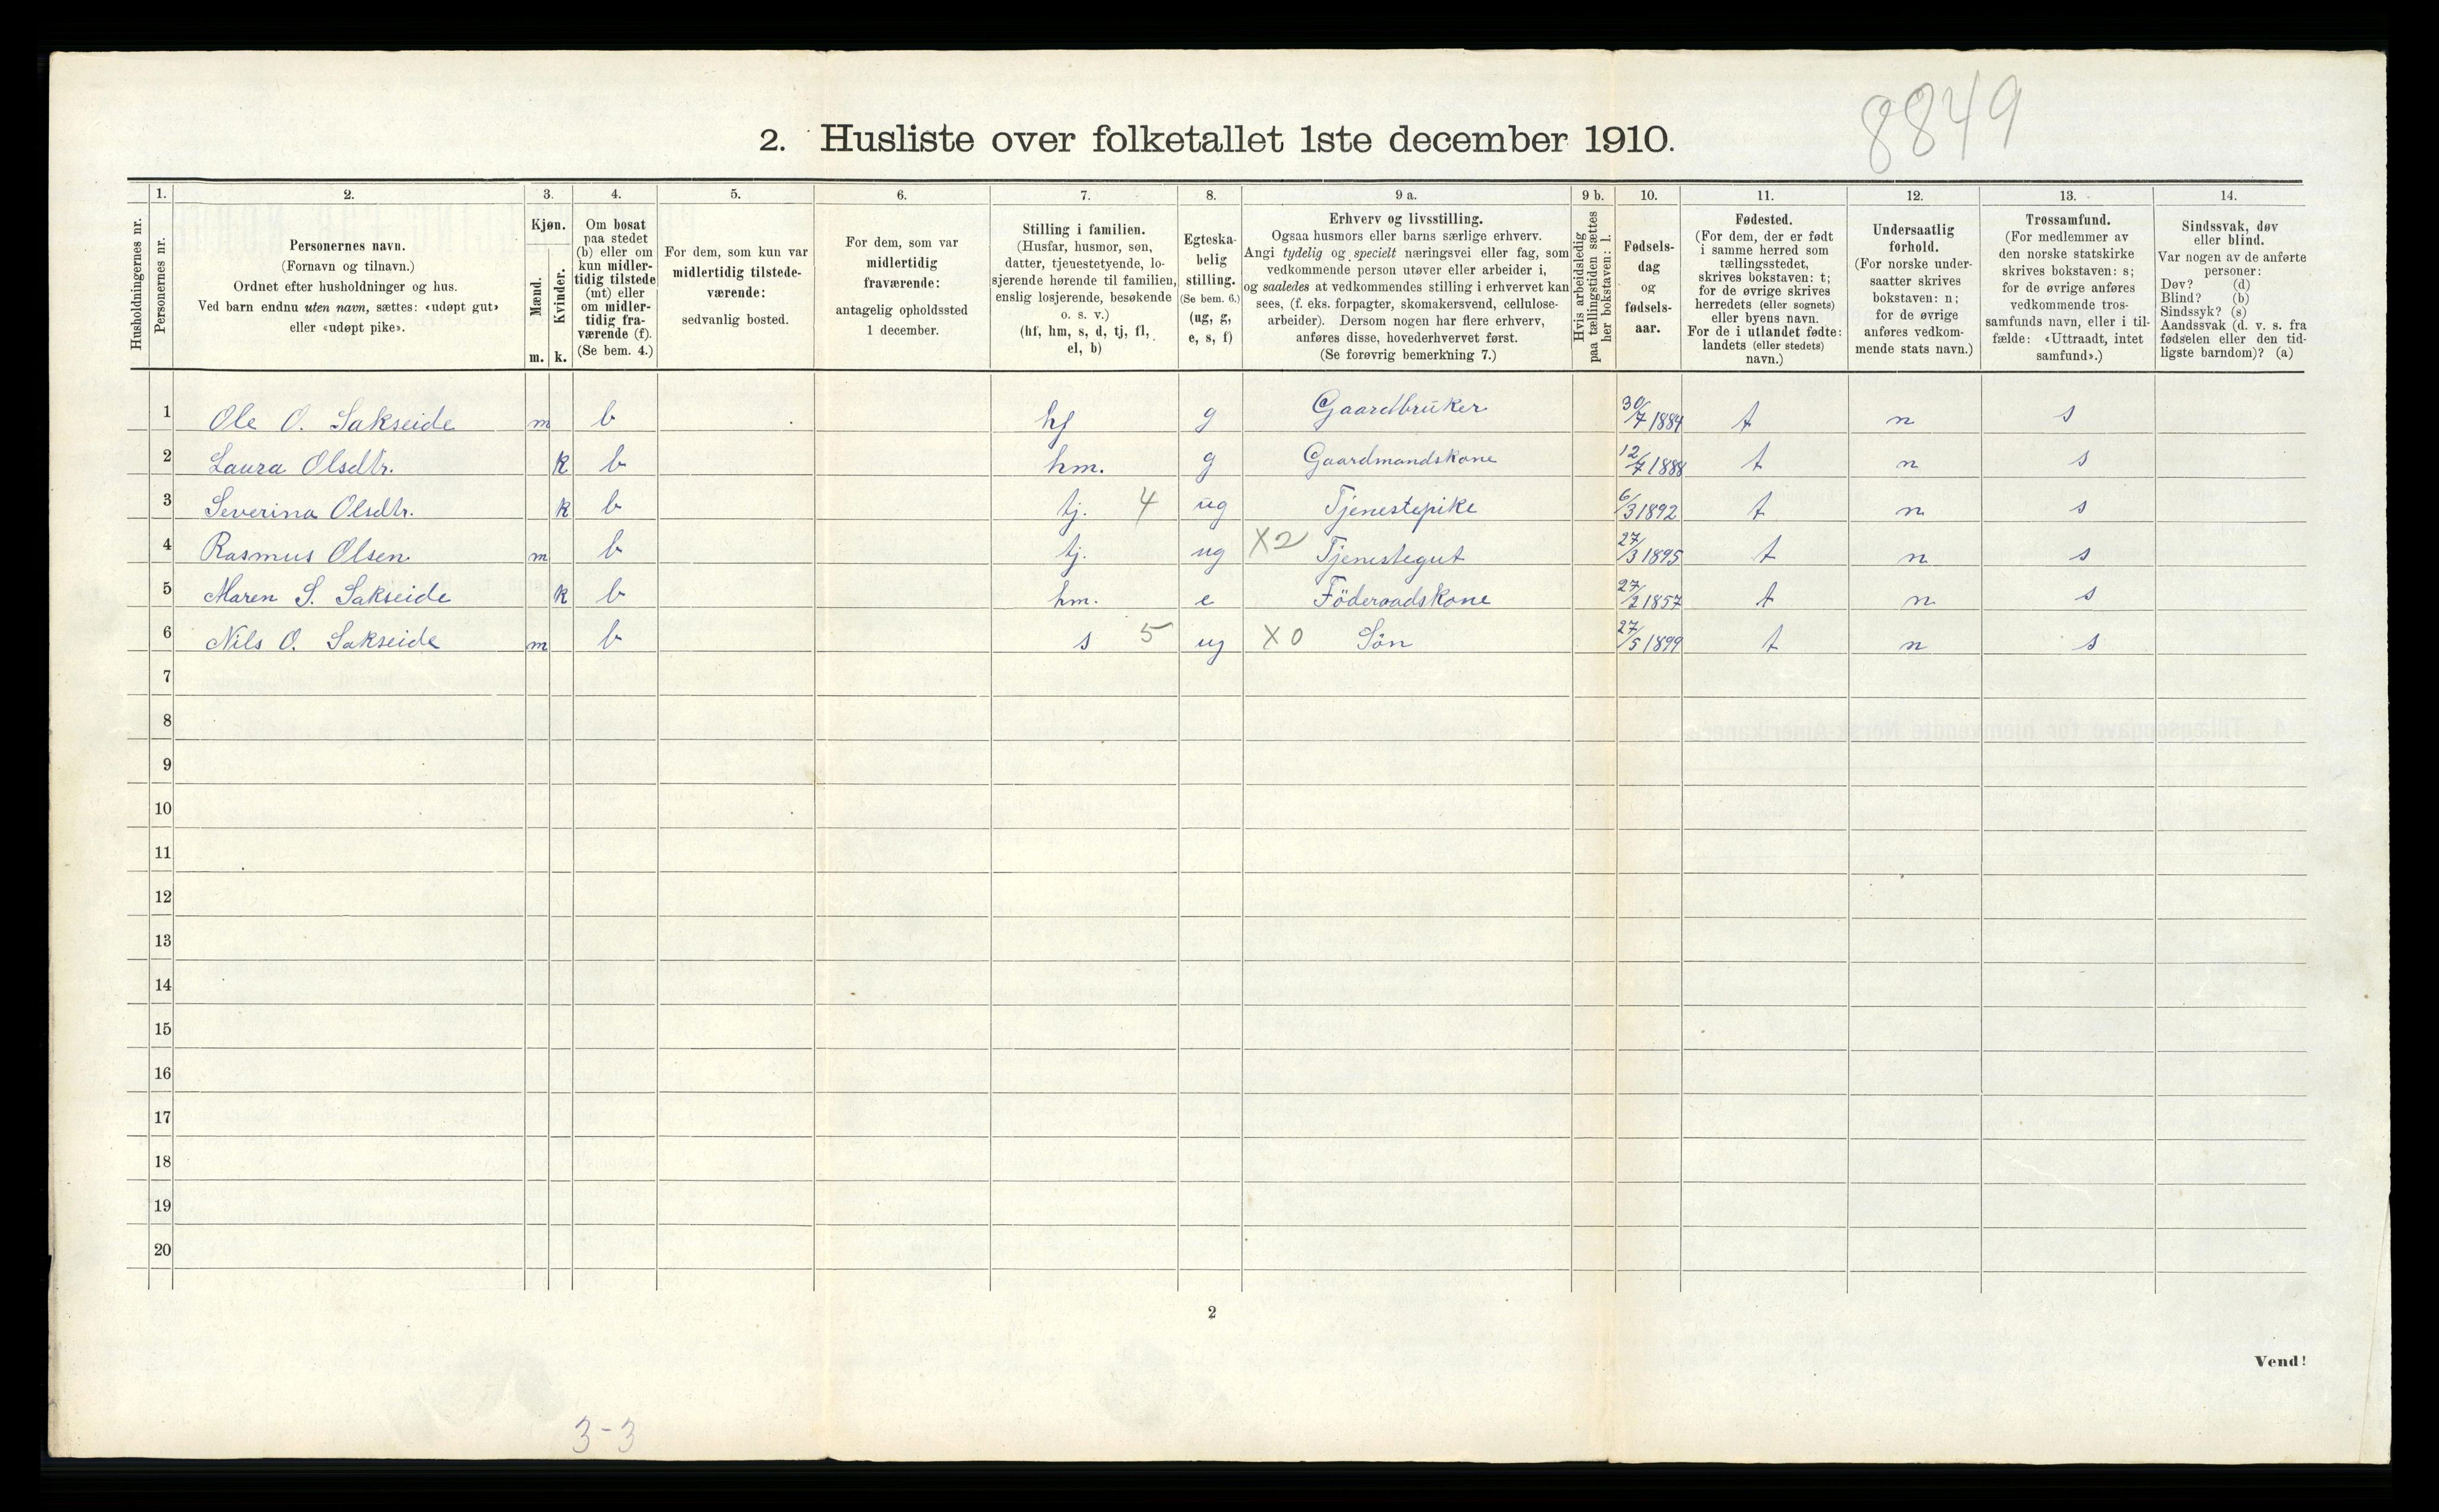 8849
2. Husliste over folketallet 1ste december 1910.
1. 2. 3. 4. 5. 6. 7. 8. 9 a. 9 b. 10. 11. 12. 13. 14.
Husholdningernes nr.
Personernes nr.
Personernes navn.
(Fornavn og tilnavn.)
Ordnet efter husholdninger og hus.
Ved barn endnu uten navn, sættes: «udøpt gut»
eller «udøpt pike».
Kjøn.
Mænd.
m.
Kvinder.
k.
Om bosat
paa stedet
(b) eller om
kun midler-
tidig tilstede
(mt) eller
om midler-
tidig fra-
værende (f).
(Se bem. 4.)
For dem, som kun var
midlertidig tilstede-
værende:
sedvanlig bosted.
For dem, som var
midlertidig
fraværende:
antagelig opholdssted
1 december.
Stilling i familien.
(Husfar, husmor, søn,
datter, tjenestetyende, lo-
sjerende hørende til familien,
enslig losjerende, besøkende
o. s. v.)
(hf, hm, s, d, tj, fl,
el, b)
Egteska-
belig
stilling.
(Se bem. 6.)
(ug, g,
e, s, f)
Erhverv og livsstilling.
Ogsaa husmors eller barns særlige erhverv.
Angi tydelig og specielt næringsvei eller fag, som
vedkommende person utøver eller arbeider i,
og saaledes at vedkommendes stilling i erhvervet kan
sees, (f. eks. forpagter, skomakersvend, cellulose-
arbeider). Dersom nogen har flere erhverv,
anføres disse, hovederhvervet først.
(Se forøvrig bemerkning 7.)
Hvis arbeidsledig
paa tællingstiden sættes
her bokstaven: l.
Fødsels-
dag
og
fødsels-
aar.
Fødested.
(For dem, der er født
i samme herred som
tællingsstedet,
skrives bokstaven: t;
for de øvrige skrives
herredets (eller sognets)
eller byens navn.
For de i utlandet fødte:
landets (eller stedets)
navn.)
Undersaatlig
forhold.
(For norske under-
saatter skrives
bokstaven: n;
for de øvrige
anføres vedkom-
mende stats navn.)
Trossamfund.
(For medlemmer av
den norske statskirke
skrives bokstaven: s;
for de øvrige anføres
vedkommende tros-
samfunds navn, eller i til-
fælde: «Uttraadt, intet
samfund».)
Sindssvak, døv
eller blind.
Var nogen av de anførte
personer:
Døv? (d)
Blind? (b)
Sindssyk? (s)
Aandssvak (d. v. s. fra
fødselen eller den tid-
ligste barndom)? (a)
1 Ole O. Sakseide m b hf g Gaardbruker 30/7 1884 t n s
2 Laura Olsdtr. k b hm. g Gaardmandskone 12/7 1888 t n s
3 Severina Olsdtr. k b tj. 4 ug Tjenestepike 6/3 1892 t n s
4 Rasmus Olsen m b tj. ug X2 Tjenestegut 27/3 1895 t n s
5 Maren S. Sakseide k b hm. e Föderaadskone 27/2 1857 t n s
6 Nils O. Sakseide m b s 5 ug X0 Sön 27/5 1899 t n s
7
8
9
10
11
12
13
14
15
16
17
18
19
20
2
Vend!
3-3